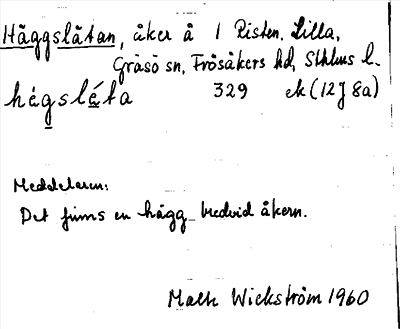 Häggslätan, åker å 1 Risten, Lilla,
Gräsö sn, Frösåkers hd, Sthlms l.
hęgsleta 329 ek (12J 8a)
Meddelaren:
Det finns en hägg bredvid åkern.
Mats Wickström 1960